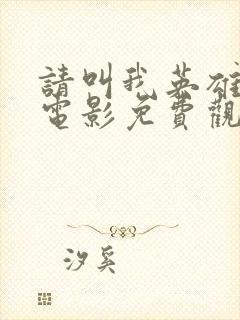 請叫我英雄
電影免費觀
汐奚